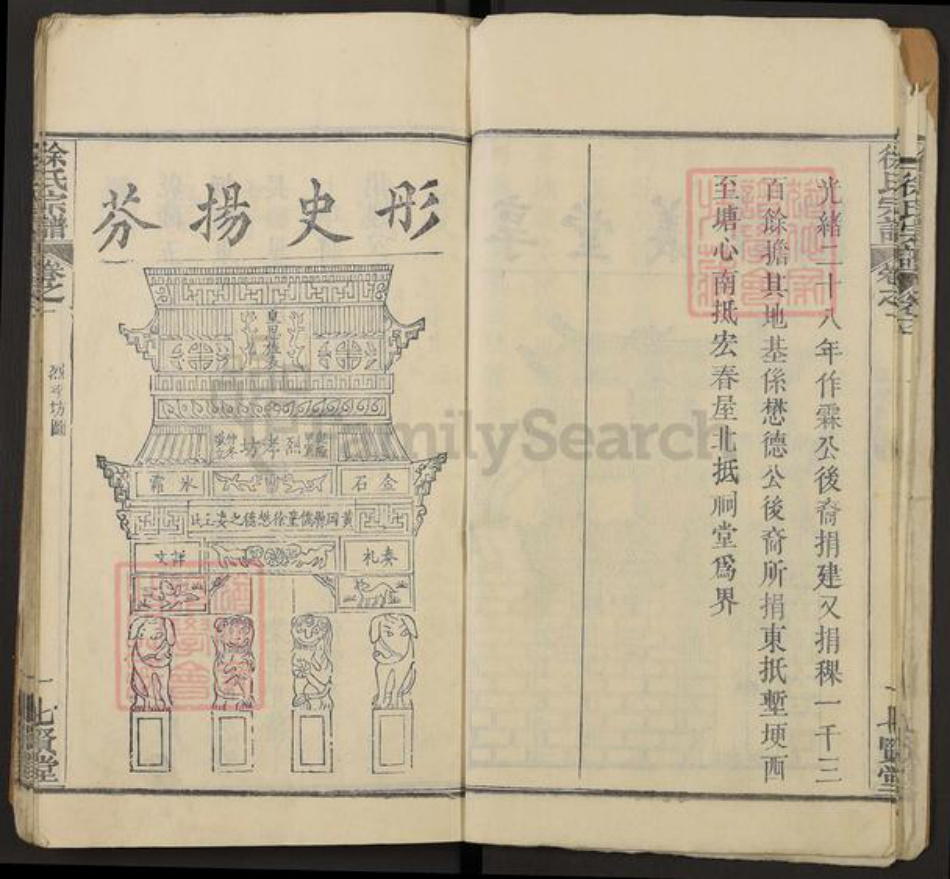 光緒二十八年作霖公後裔捐建又捐稞一千三
百餘擔其地基係懋德公後裔所捐東抵塹埂西
至塘心南抵宏春屋北抵祠堂爲界
徐氏宗譜
卷之一
七賢堂
彤史揚芬
烈孝坊
金石
冰霜
黃岡縣儒童徐懋德之妻王氏
秦礼
詳文
徐氏宗譜
卷之一
烈孝坊圖
七賢堂
FamilySearch